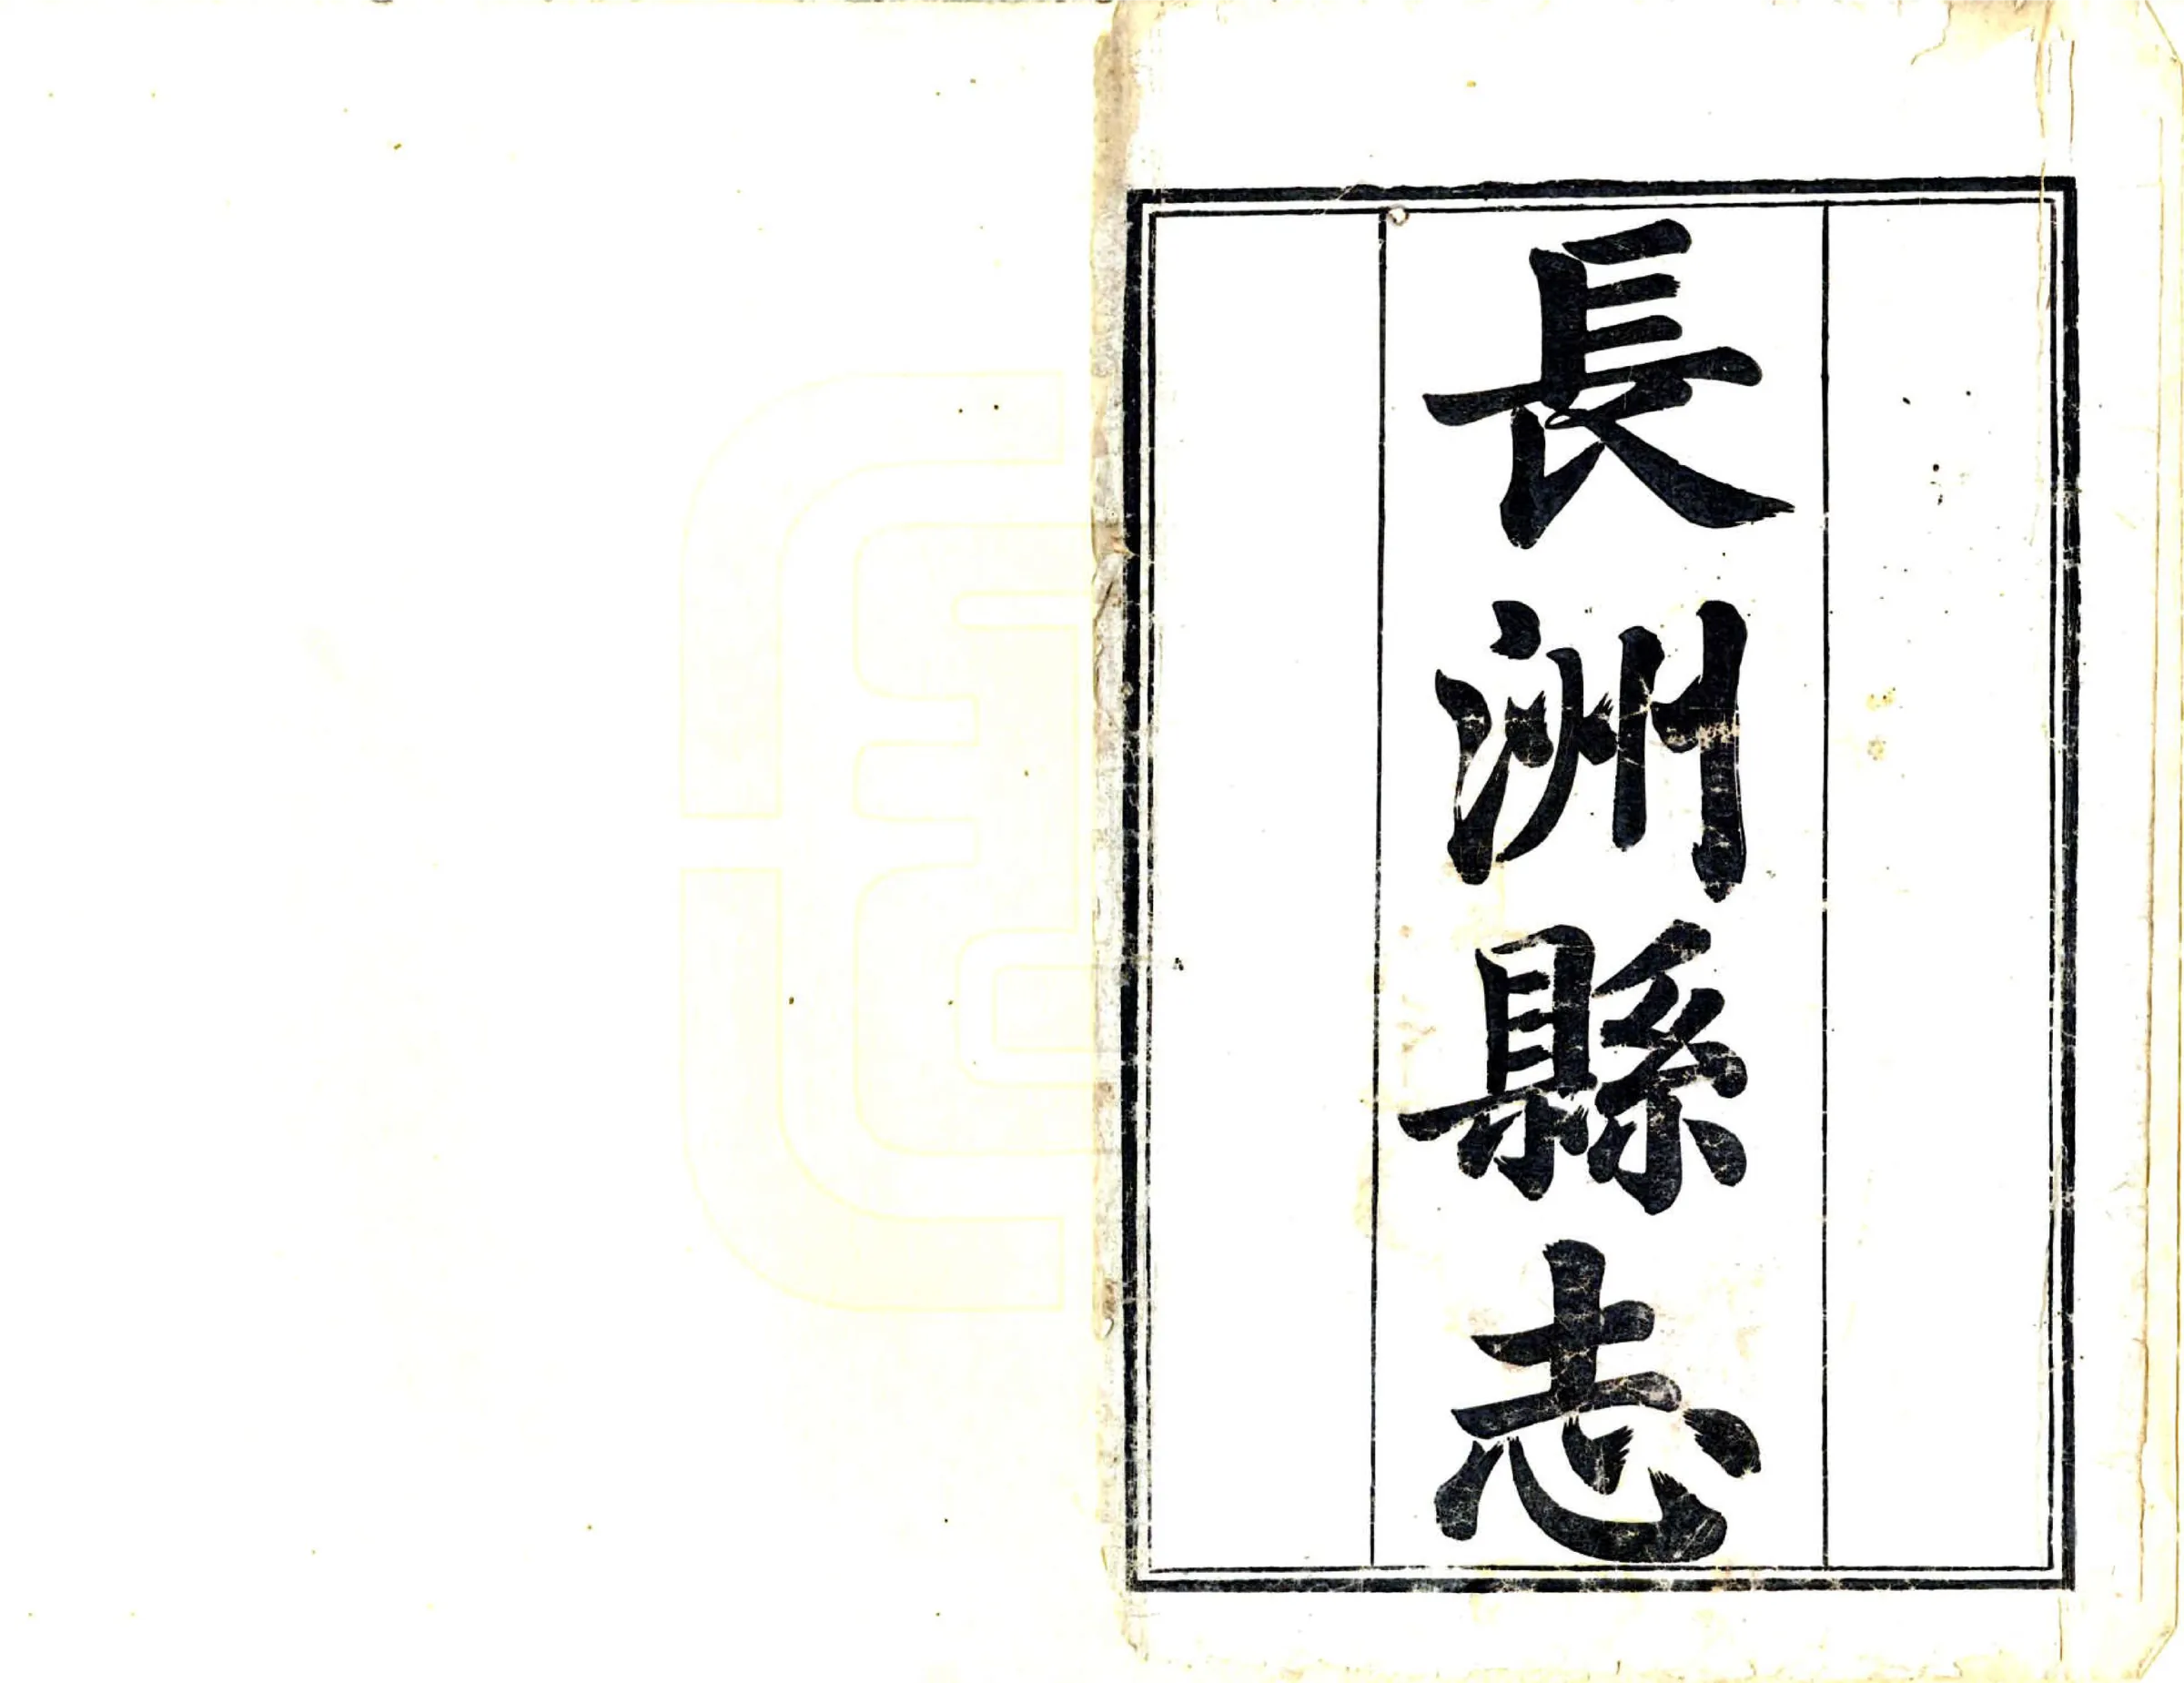 長洲縣志